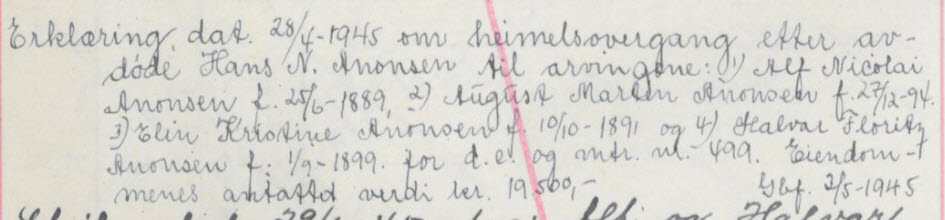 Erklæring, dat. 28/4-1945 om heimelsovergang etter av-
døde Hans N. Anonsen til arvingene: 1) Alf Nicolai
Anonsen f. 25/6-1889, 2) August Marten Anonsen f. 27/12-94.
3) Elin Kristine Anonsen f. 10/10-1891 og 4) Halvar Floritz
Anonsen f: 1/9-1899. for d.e. og mtr. nl. 499. Eiendom-
menes antattd verdi kr. 19.500,- Gbf. 2/5-1945